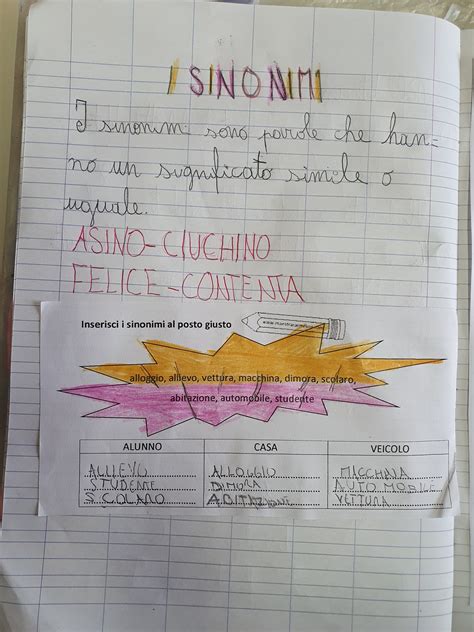 I SINONIMI
I sinonimi sono parole che han=
no un significato simile o
uguale.
ASINO-CIUCHINO
FELICE-CONTENTA
Inserisci i sinonimi al posto giusto
alloggio, allievo, vettura, macchina, dimora, scolaro,
abitazione, automobile, studente
ALUNNO CASA VEICOLO
ALLIEVO ALLOGGIO MACCHINA
STUDENTE DIMORA AUTOMOBILE
SCOLARO ABITAZIONE VETTURA